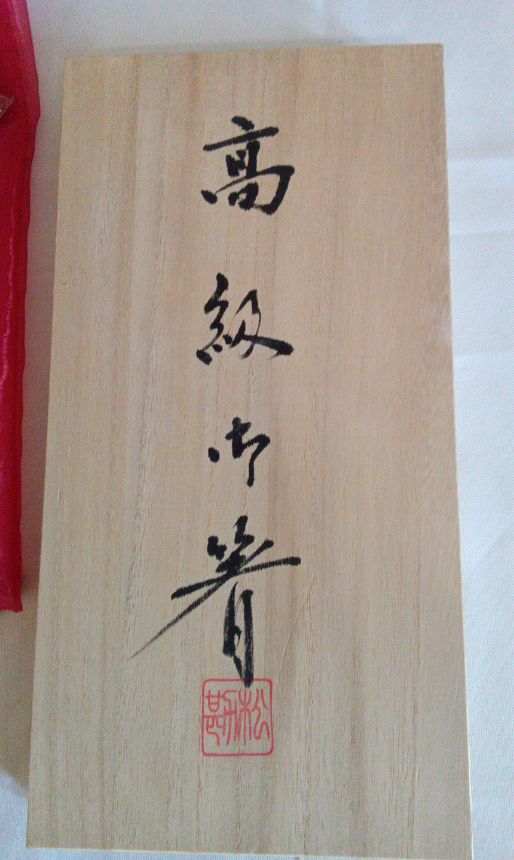 高級御箸
松勘